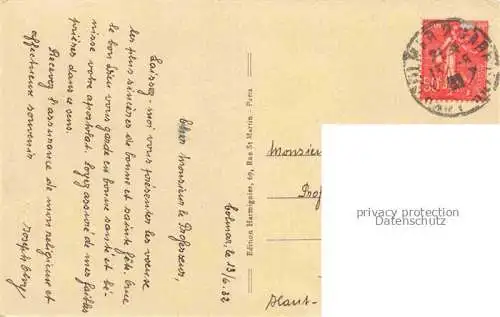 Colmar, le 13/6.32
Cher Monsieur le Professeur,
Laissez-moi vous présenter les voeux
les plus sincères de bonne et sainte fête. Que
le bon Dieu vous garde en bonne santé et bé-
nisse votre apostolat. Soyez assuré de mes faibles
prières dans ce sens.
Recevez l'assurance de mon religieux et
affectueux souvenir
Joseph
Edition Hermignies, 69, Rue St Martin - Paris
Monsieu
Prof
Haut-
50
privacy protection
www.oldthing.de
privacy protection
www.oldthing.de